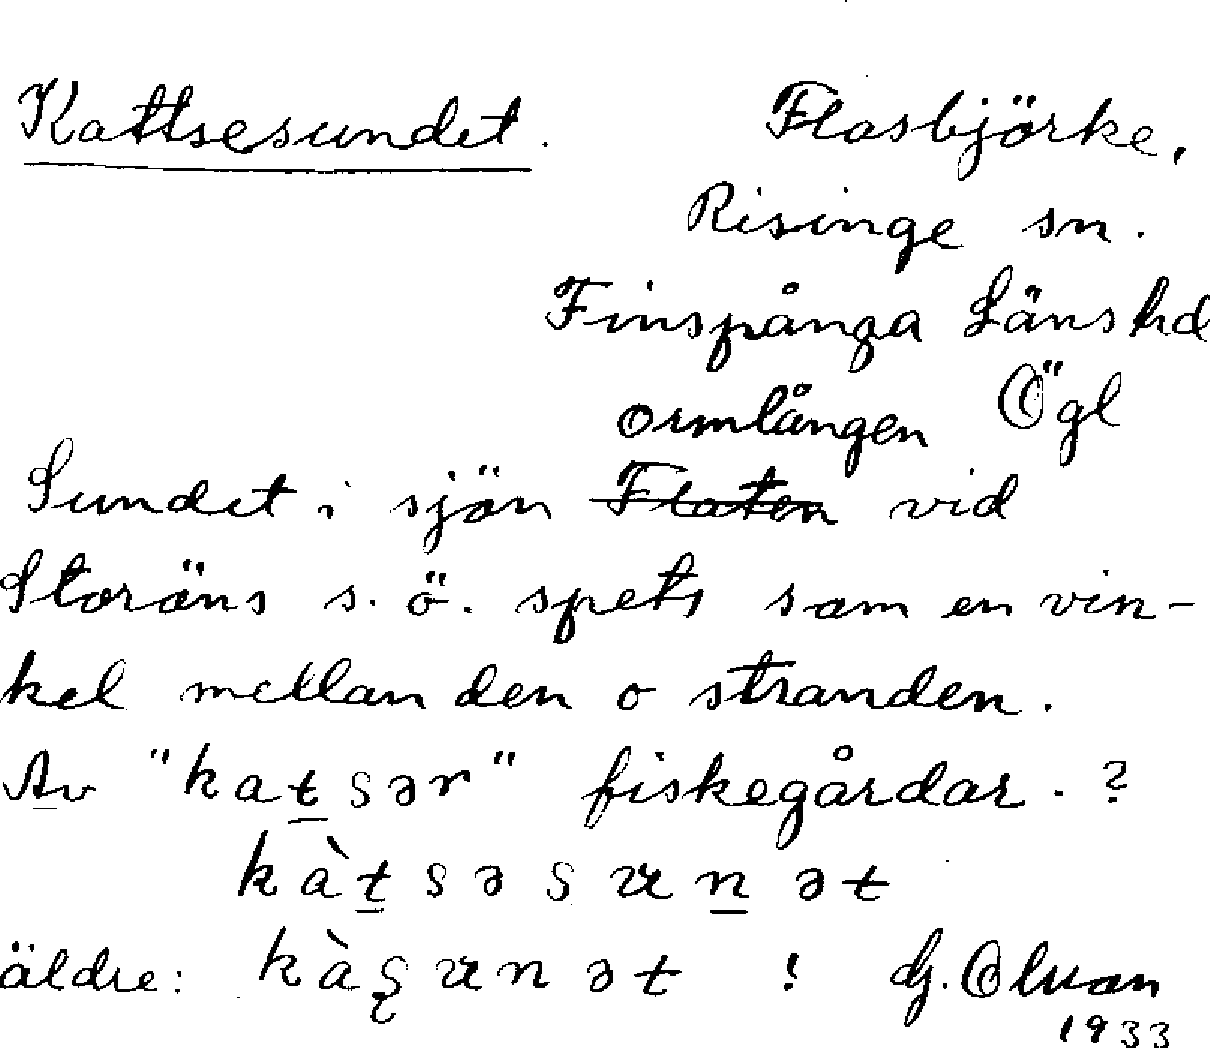 Kattsesundet. Flasbjörke,
Risinge sn.
Finspånga Läns hd
ormlången Ögl
Sundet i sjön Flaten vid
Storäns s. ö. spets som en vin-
kel mellan den o stranden.
Av "katsər" fiskegårdar. ?
kàtsəsunət
äldre: kàsunət ! 
1933